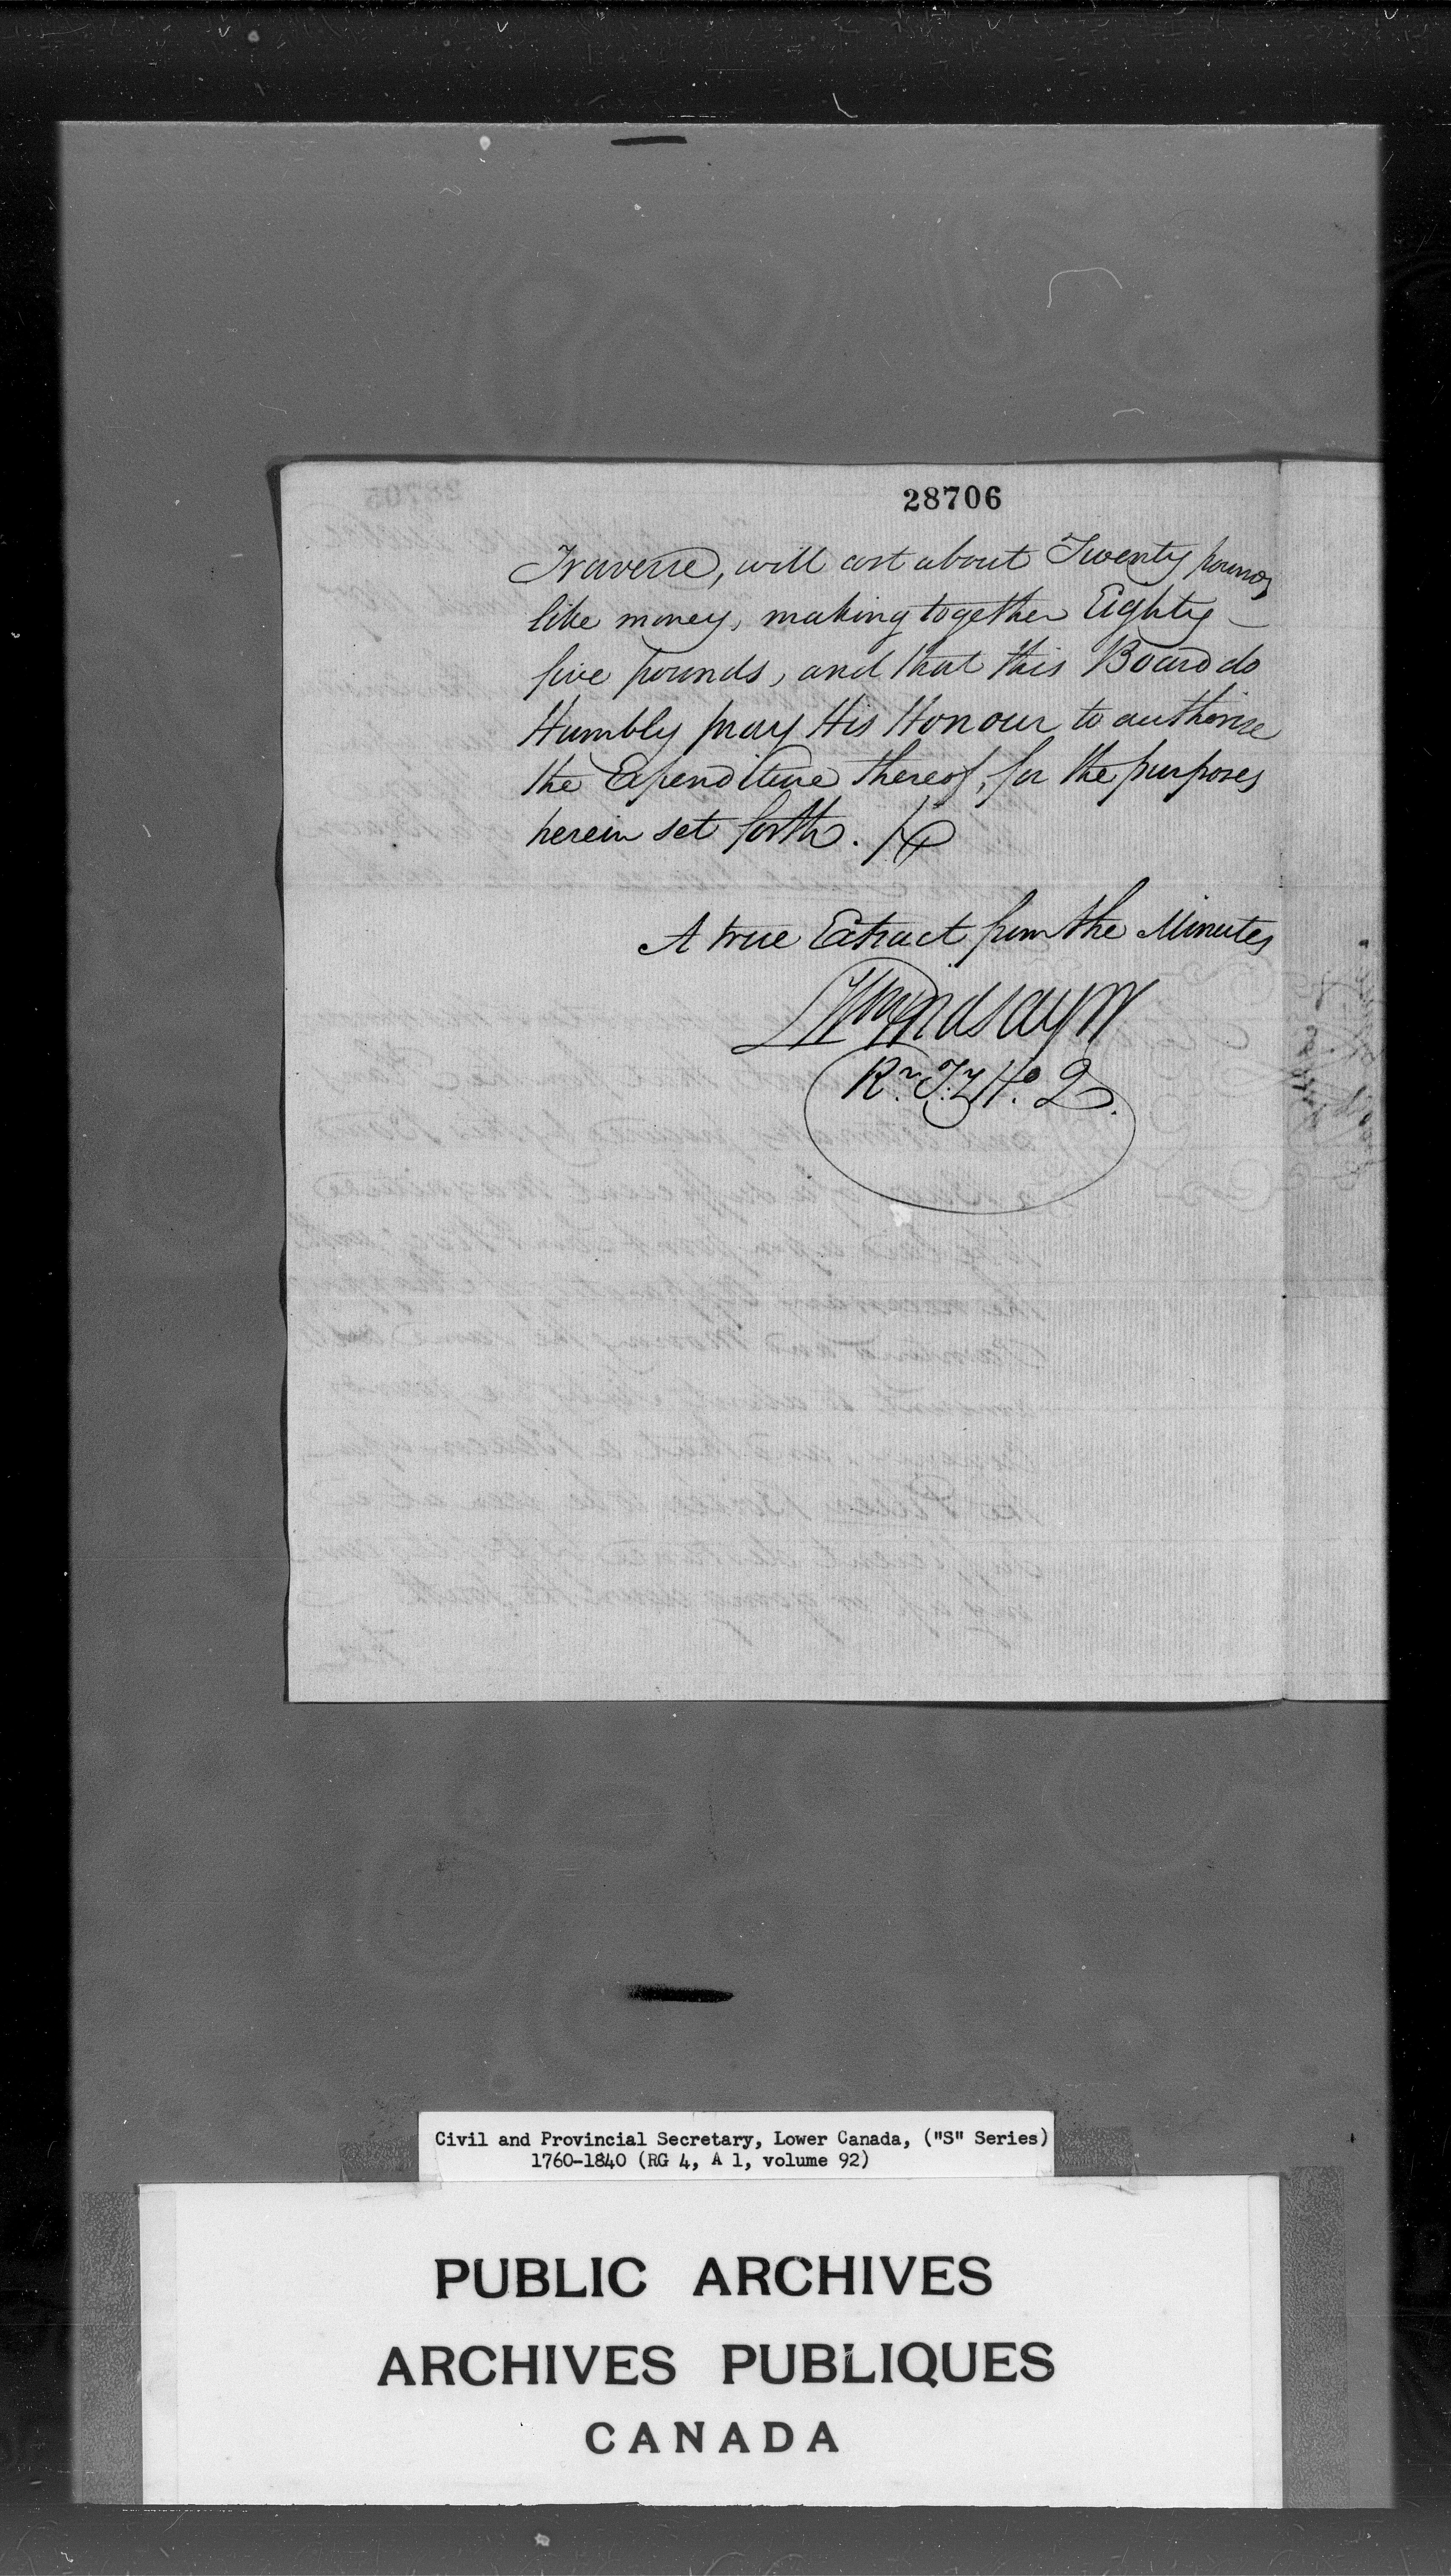 28706
Traverse, will cost about Twenty pounds
like money, making together Eighty
five pounds, and that this Board do
Humbly pray His Honour to authorise
the Expenditure thereof, for the purposes
herein set forth.
A true Extract from the Minutes
Wm Lindsay
Rr. Ty Ho. Q.
Civil and Provincial Secretary, Lower Canada, ("S" Series)
1760-1840 (RG 4, A 1, volume 92)
PUBLIC ARCHIVES
ARCHIVES PUBLIQUES
CANADA